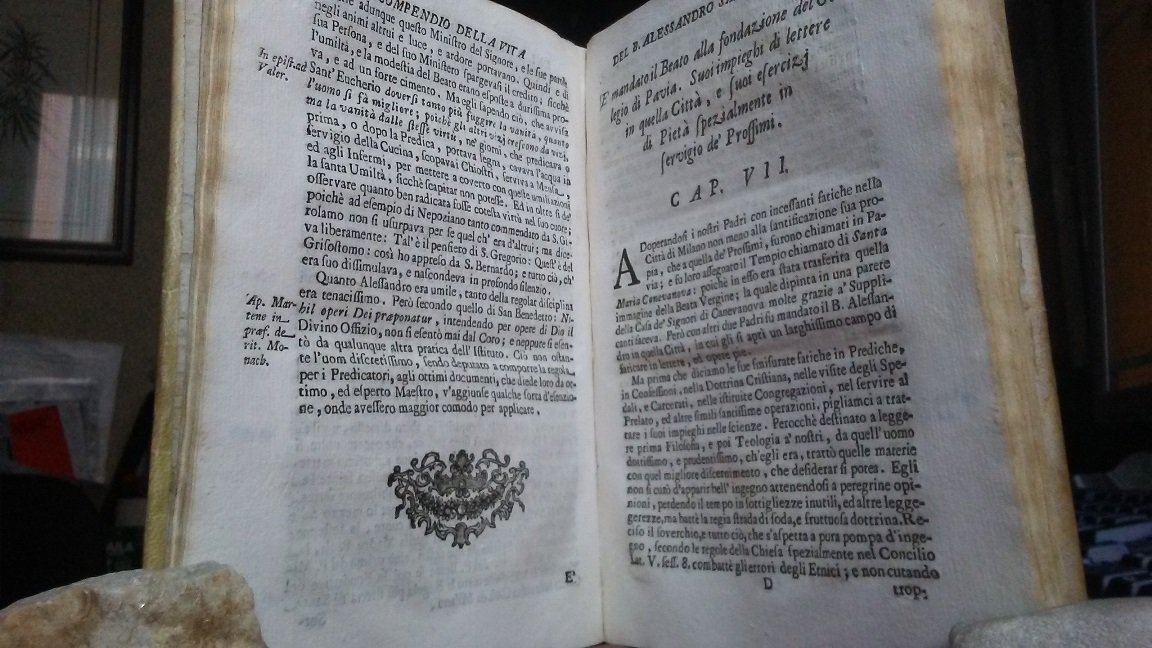 COMPENDIO DELLA VITA
adunque questo Ministro del Signore, e le sue paro
negli animi altrui e luce, e ardore portavano. Quindi e di
sua Persona, e del suo Ministero spargevasi il credito; sicchè
l'umiltà, e la modestia del Beato erano esposte a durissima pro-
va, e ad un forte cimento. Ma egli sapendo ciò, che avvisa
In epist. ad Valer.
Sant' Eucherio doversi tanto più fuggire la vanità, quanto
l'uomo si fà migliore; poichè gli altri vizj crescono da vizj,
ma la vanità dalle stesse virtù, ne' giorni, che predicava o
prima, o dopo la Predica, portava legna, cavava l'acqua in
servigio della Cucina, scopava i Chiostri, serviva a Mensa,
ed agli Infermi, per mettere a coverto con queste umiliazioni
la santa Umiltà, sicchè scapitar non potesse. Ed in oltre si de'
osservare quanto ben radicata fosse cotesta virtù nel suo cuore;
poichè ad esempio di Nepoziano tanto commendato da S. Gi-
rolamo non si usurpava per se quel ch' era d'altrui; ma dice-
va liberamente: Tal' è il pensiero di S. Gregorio: Quest' è del
Grisostomo: così ho appreso da S. Bernardo; e tutto ciò, ch'
era suo dissimulava, e nascondeva in profondo silenzio.
Quanto Alessandro era umile, tanto della regolar disciplina
era tenacissimo. Però secondo quello di San Benedetto: Ni-
Ap. Mar-
tene in
præf. de
rit. Mo-
nach.
hil operi Dei præponatur, intendendo per opere di Dio il
Divino Offizio, non si esentò mai dal Coro; e neppure si esen-
tò da qualunque altra pratica dell' Istituto. Ciò non ostan-
te l'uom discretissimo, sendo deputato a comporre la regola
per i Predicatori, agli ottimi documenti, che diede loro da ot-
timo, ed esperto Maestro, v'aggiunse qualche sorta d'esenzio-
ne, onde avessero maggior comodo per applicare.
E'
DEL B. ALESSANDRO
E' mandato il Beato alla fondazione del
legio di Pavia. Suoi impieghi di lettere
in quella Città, e suoi esercizj
di Pietà spezialmente in
servigio de' Prossimi.
CAP. VII.
ADoperandosi i nostri Padri con incessanti fatiche nella
Città di Milano non meno alla santificazione sua pro-
pia, che a quella de' Prossimi, furono chiamati in Pa-
via; e fu loro assegnato il Tempio chiamato di Santa
Maria Canevanova: poichè in esso era stata trasferita quella
immagine della Beata Vergine; la quale dipinta in una parete
della Casa de' Signori di Canevanova molte grazie a' Suppli-
canti faceva. Però con altri due Padri fu mandato il B. Alessan-
dro in quella Città, in cui gli si aprì un larghissimo campo di
faticare in lettere, ed opere pie.
Ma prima che diciamo le sue smisurate fatiche in Prediche,
in Confessioni, nella Dottrina Cristiana, nelle visite degli Spe-
dali, e Carcerati, nelle istituite Congregazioni, nel servire al
Prelato, ed altre simili santissime operazioni, pigliamci a trat-
tare i suoi impieghi nelle scienze. Perocchè destinato a legge-
re prima Filosofia, e poi Teologia a' nostri, da quell' uomo
dottissimo, e prudentissimo, ch'egli era, trattò quelle materie
con quel migliore discernimento, che desiderar si potea. Egli
non si curò d'apparir bell' ingegno attenendosi a peregrine opi-
nioni, perdendo il tempo in sottigliezze inutili, ed altre legge-
gerezze, ma battè la regia strada di soda, e fruttuosa dottrina. Re-
ciso il soverchio, e tutto ciò, che s'aspetta a pura pompa d'inge-
gno, secondo le regole della Chiesa spezialmente nel Concilio
Lat. V. sess. 8. combattè gli errori degli Etnici; e non curando
D
trop-